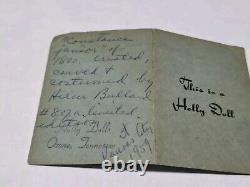 "Constance
Junior" of
1800. Created,
carved &
costumed by
Helen Bullard
#87 in limited
edition
Holly Dolls
Ozone, Tennessee
1959
This is a
Holly Doll